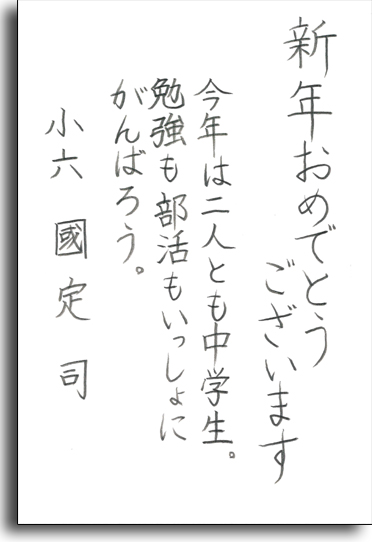 新年おめでとう
ございます
今年は二人とも中学生。
勉強も部活もいっしょに
がんばろう。
小六 國定 司